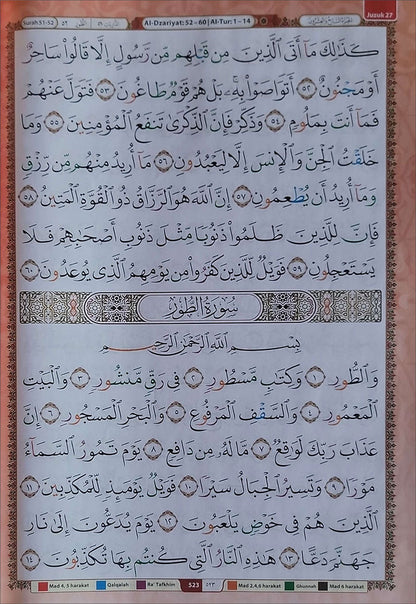 Surah 51-52 ٥٢ الطور الذاريات ٥١ Al-Dzariyat: 52 – 60 | Al-Tur: 1 – 14 الجزء السابع والعشرون Juzuk 27
كَذَٰلِكَ مَآ أَتَى ٱلَّذِينَ مِن قَبْلِهِم مِّن رَّسُولٍ إِلَّا قَالُوا۟ سَاحِرٌ
أَوْ مَجْنُونٌ ٥٢ أَتَوَاصَوْا۟ بِهِۦ ۚ بَلْ هُمْ قَوْمٌ طَاغُونَ ٥٣ فَتَوَلَّ عَنْهُمْ
فَمَآ أَنتَ بِمَلُومٍ ٥٤ وَذَكِّرْ فَإِنَّ ٱلذِّكْرَىٰ تَنفَعُ ٱلْمُؤْمِنِينَ ٥٥ وَمَا
خَلَقْتُ ٱلْجِنَّ وَٱلْإِنسَ إِلَّا لِيَعْبُدُونِ ٥٦ مَآ أُرِيدُ مِنْهُم مِّن رِّزْقٍ
وَمَآ أُرِيدُ أَن يُطْعِمُونِ ٥٧ إِنَّ ٱللَّهَ هُوَ ٱلرَّزَّاقُ ذُو ٱلْقُوَّةِ ٱلْمَتِينُ ٥٨
فَإِنَّ لِلَّذِينَ ظَلَمُوا۟ ذَنُوبًا مِّثْلَ ذَنُوبِ أَصْحَٰبِهِمْ فَلَا
يَسْتَعْجِلُونِ ٥٩ فَوَيْلٌ لِّلَّذِينَ كَفَرُوا۟ مِن يَوْمِهِمُ ٱلَّذِى يُوعَدُونَ ٦٠
سُورَةُ الطُّورِ
بِسْمِ ٱللَّهِ ٱلرَّحْمَٰنِ ٱلرَّحِيمِ
وَٱلطُّورِ ١ وَكِتَٰبٍ مَّسْطُورٍ ٢ فِى رَقٍّ مَّنشُورٍ ٣ وَٱلْبَيْتِ
ٱلْمَعْمُورِ ٤ وَٱلسَّقْفِ ٱلْمَرْفُوعِ ٥ وَٱلْبَحْرِ ٱلْمَسْجُورِ ٦ إِنَّ
عَذَابَ رَبِّكَ لَوَٰقِعٌ ٧ مَّا لَهُۥ مِن دَافِعٍ ٨ يَوْمَ تَمُورُ ٱلسَّمَآءُ
مَوْرًا ٩ وَتَسِيرُ ٱلْجِبَالُ سَيْرًا ١٠ فَوَيْلٌ يَوْمَئِذٍ لِّلْمُكَذِّبِينَ ١١
ٱلَّذِينَ هُمْ فِى خَوْضٍ يَلْعَبُونَ ١٢ يَوْمَ يُدَعُّونَ إِلَىٰ نَارِ
جَهَنَّمَ دَعًّا ١٣ هَٰذِهِ ٱلنَّارُ ٱلَّتِى كُنتُم بِهَا تُكَذِّبُونَ ١٤
Mad 4, 5 harakat Qalqalah Ra' Tafkhim 523 ٥٢٣ Mad 2,4,6 harakat Ghunnah Mad 6 harakat